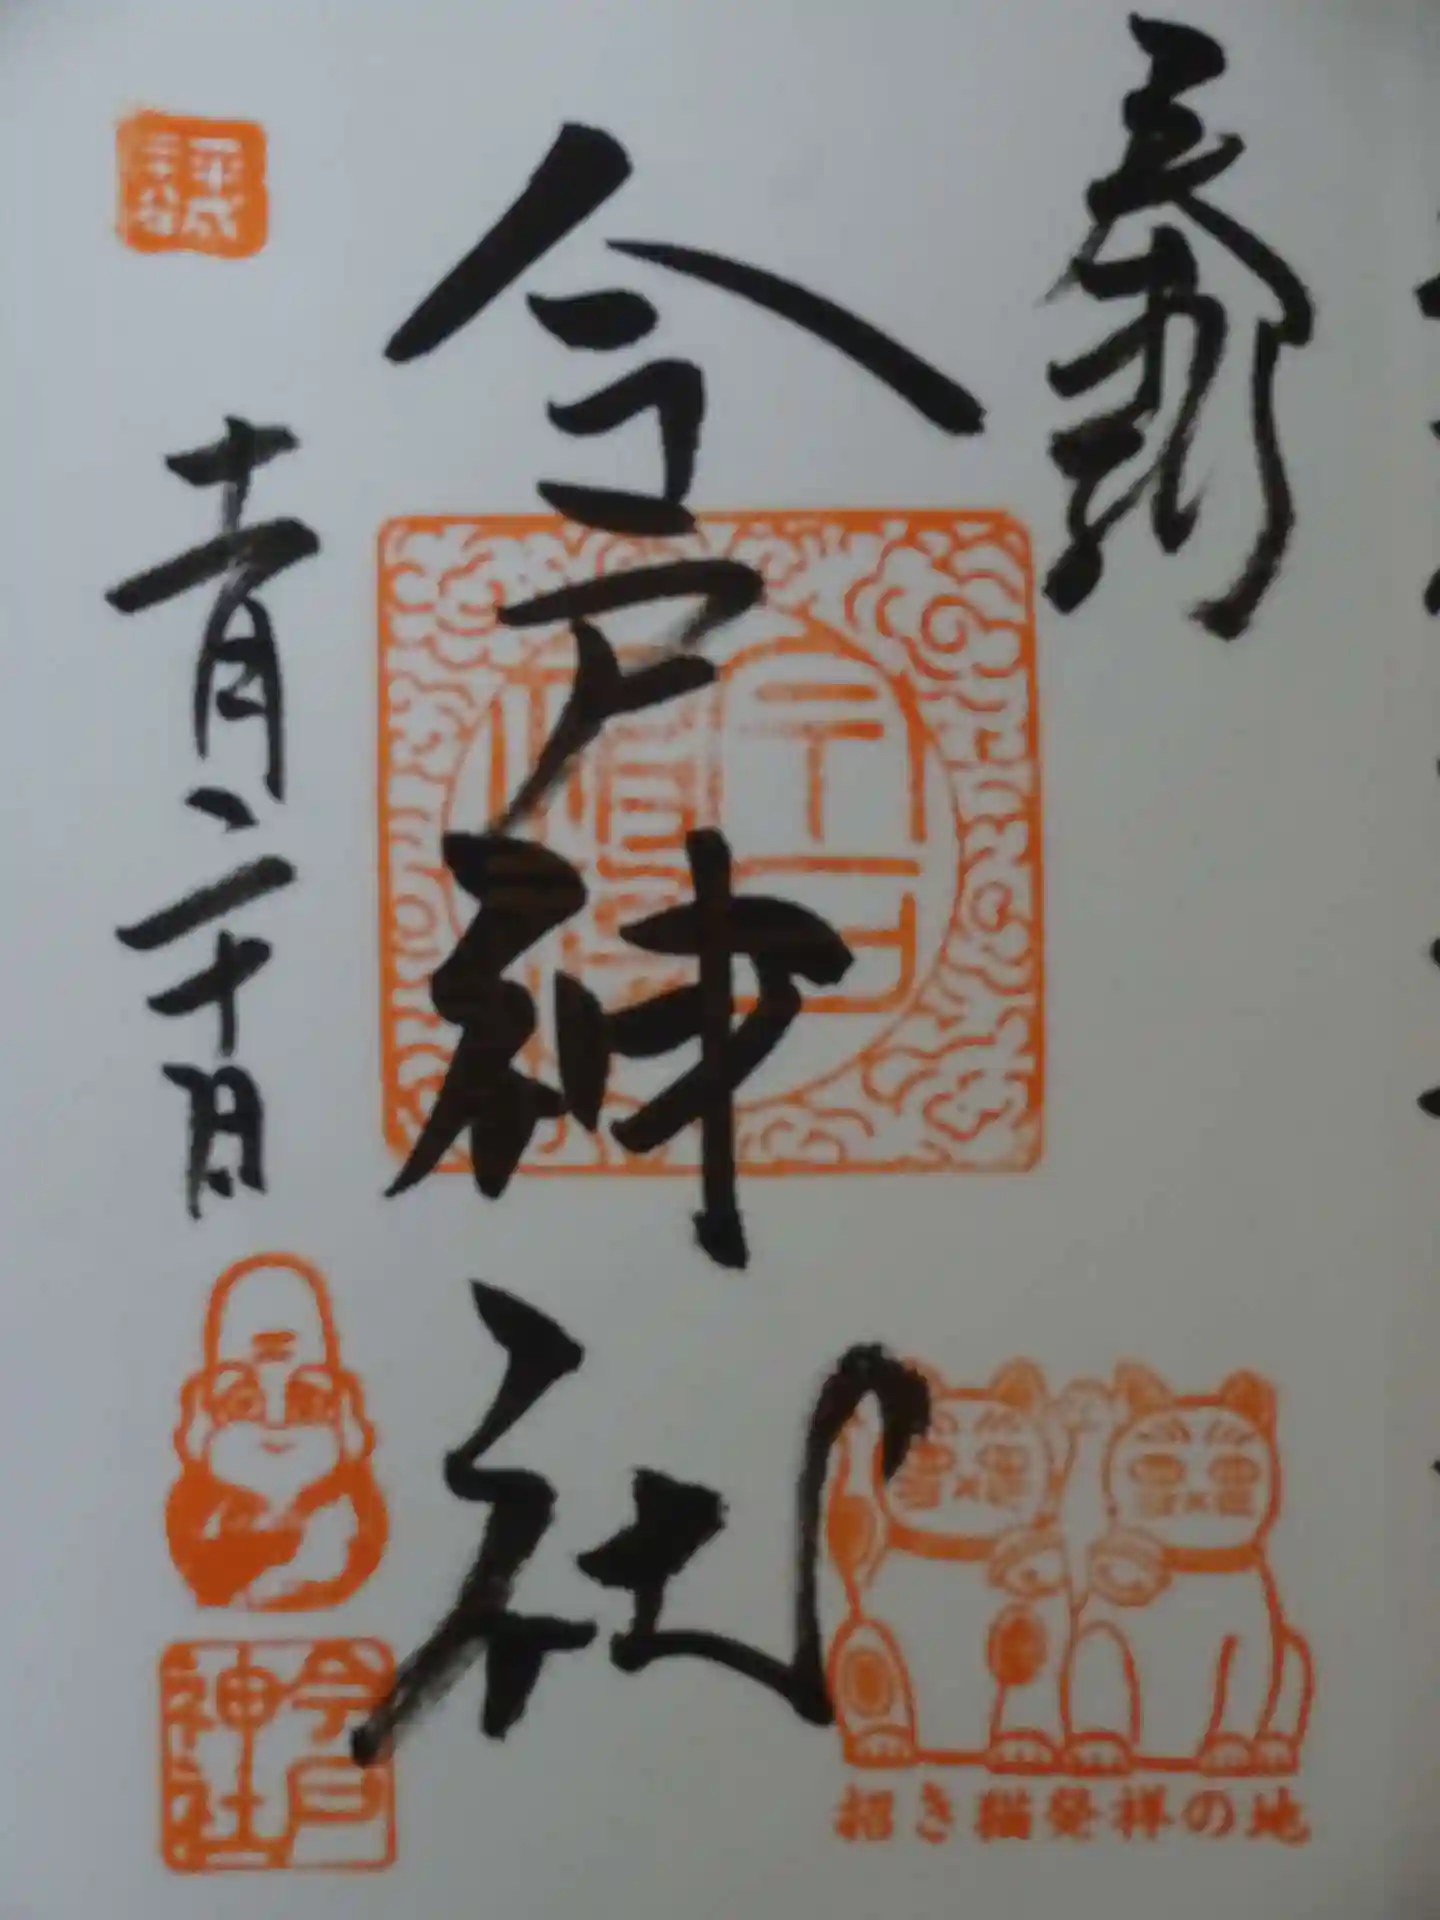 奉拝
今戸神社
平成
二十八年
十一月二十日
今戸
神社
招き猫発祥の地